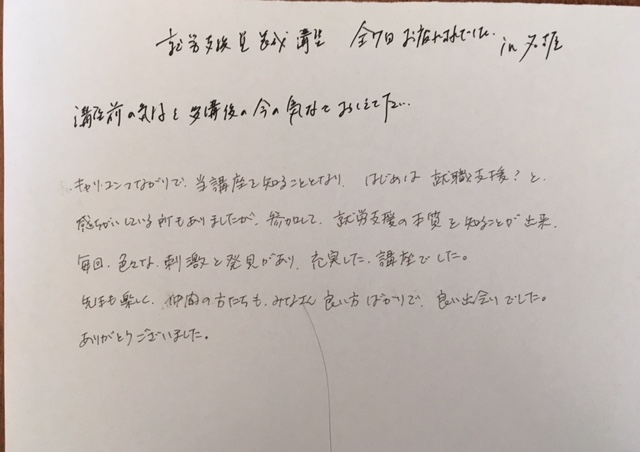 就労支援員養成講座 全7回 お疲れさまでした。in 名古屋
講座前の気持ちと受講後の今の気持ちをおしえて下さい
キャリコンつながりで、当講座を知ることとなり、はじめは 就職支援?と、
感ちがいしている所もありましたが、参加して、就労支援の本質を知ることが出来、
毎回、色々な、刺激と発見があり、充実した、講座でした。
先生も楽しく、仲間の方たちも、みなさん 良い方ばかりで、良い出会いでした。
ありがとうございました。